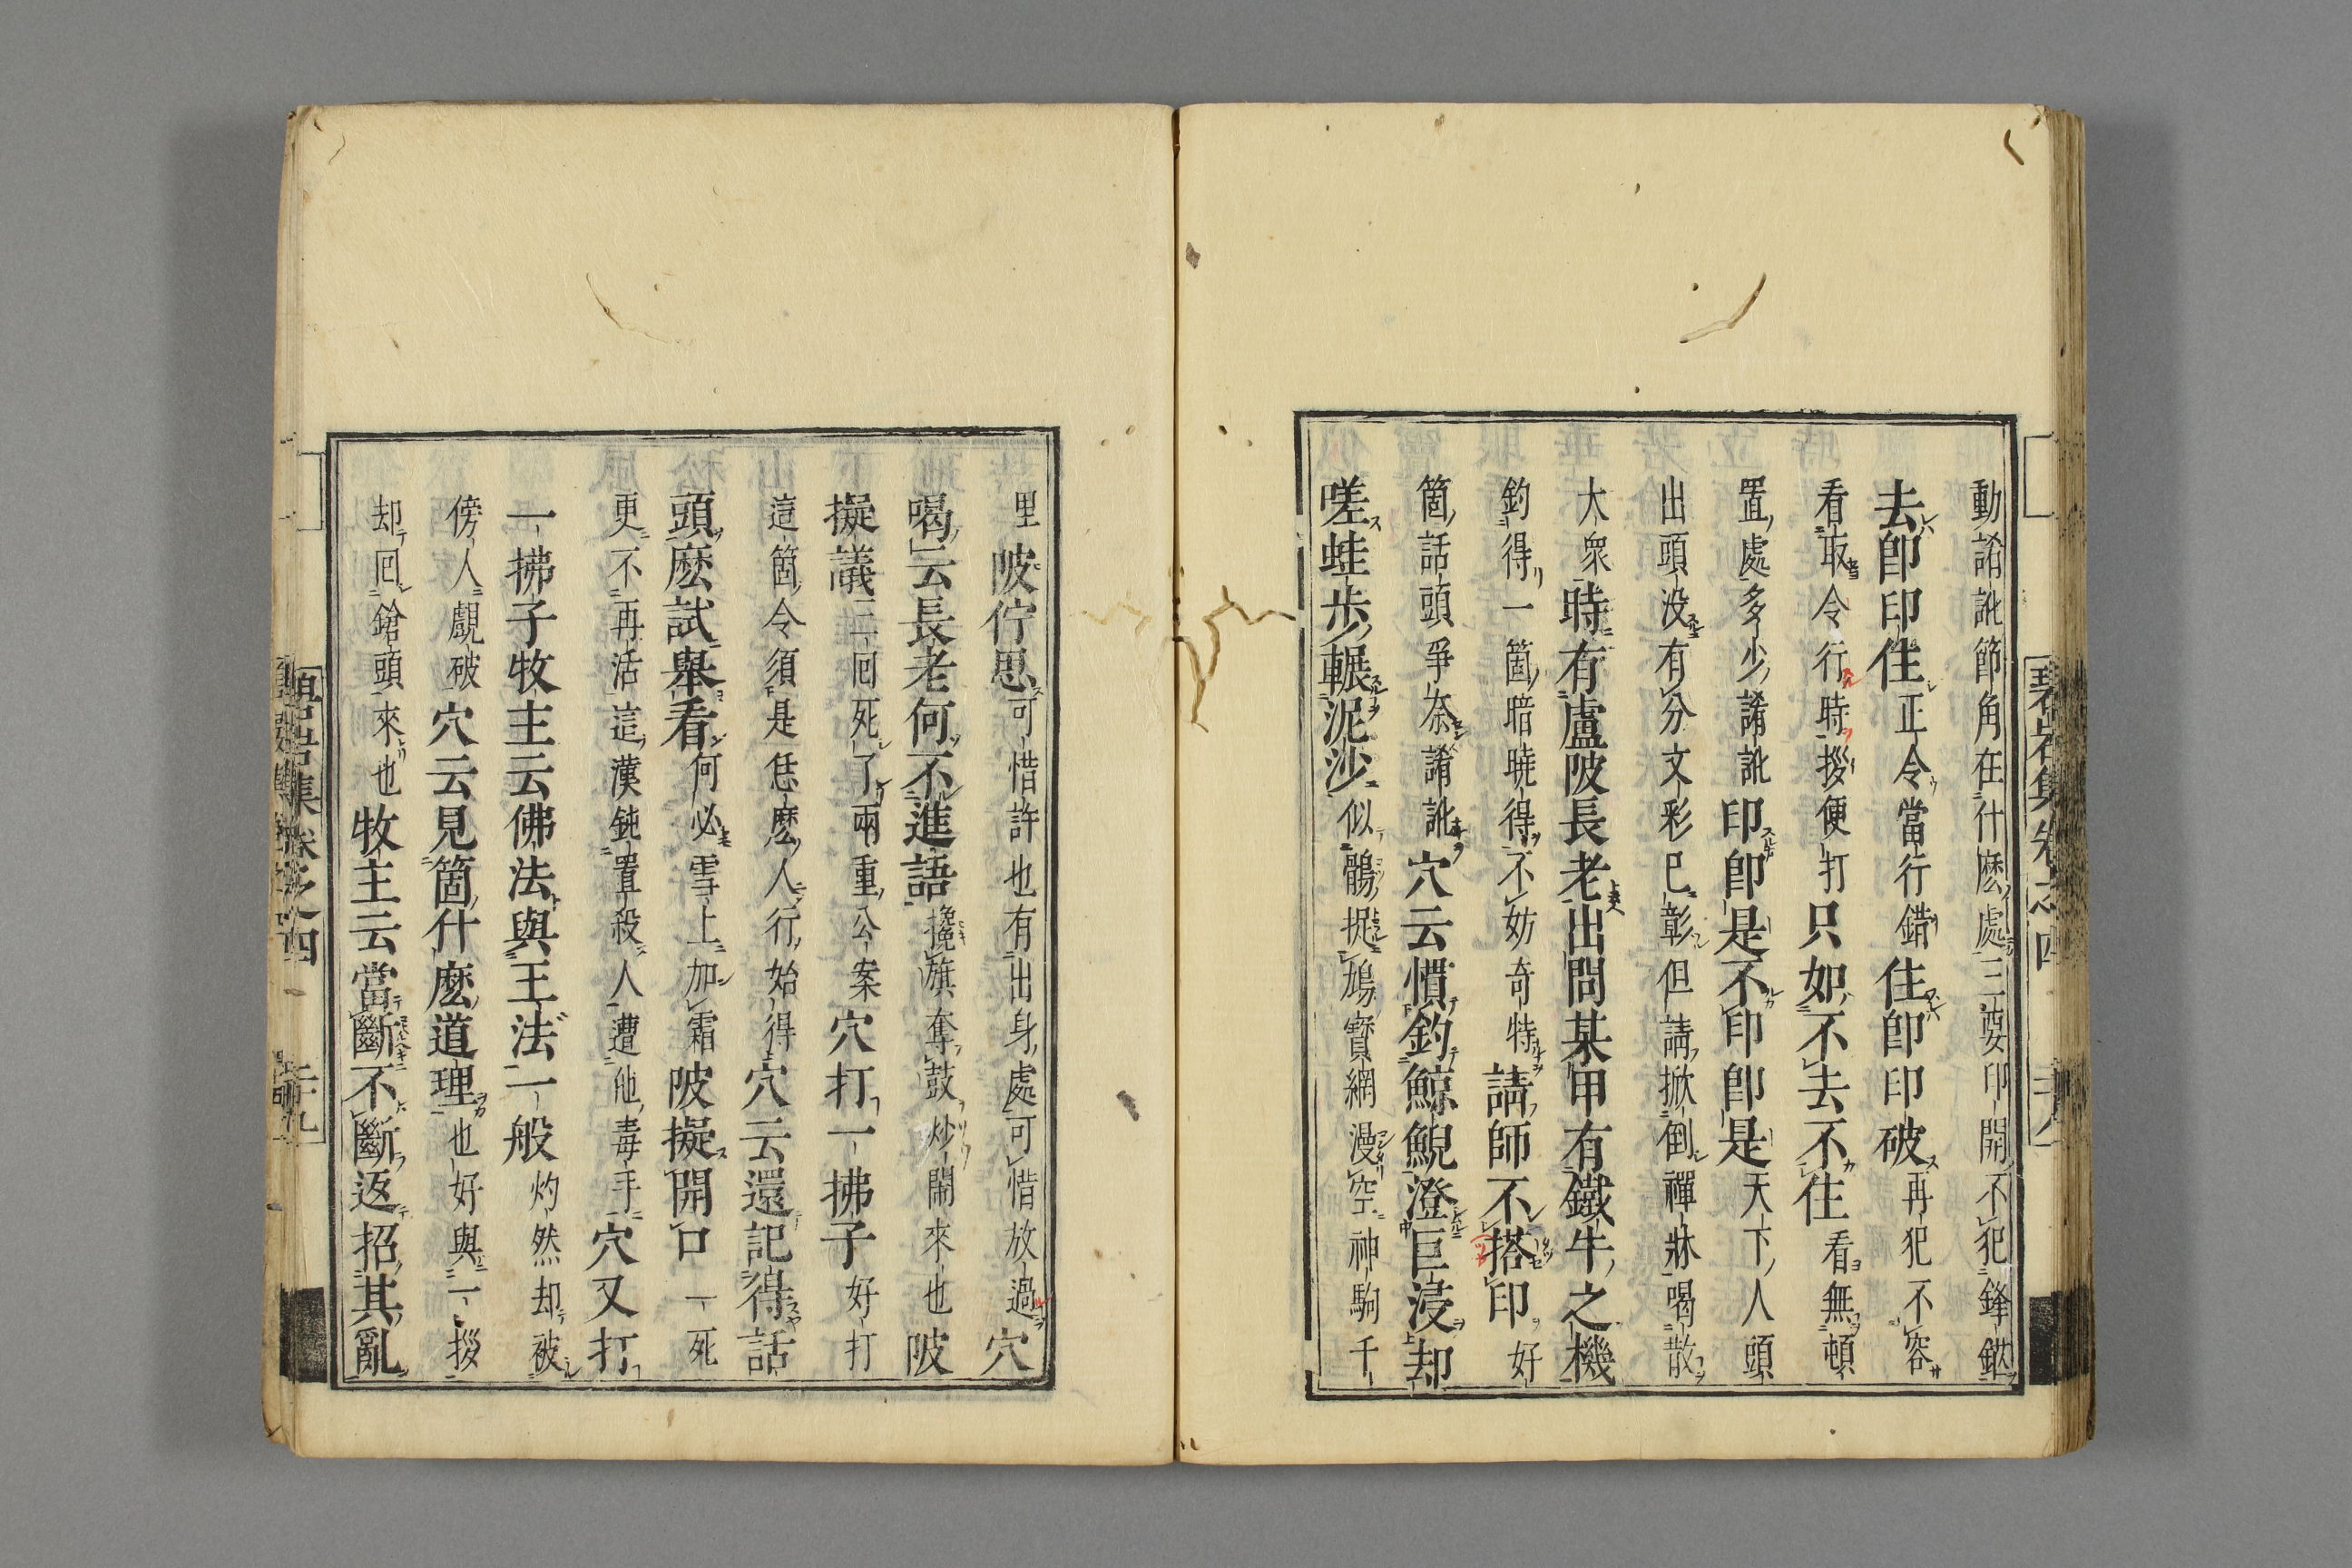 動誵訛節角在什麽處三要印開不犯鋒鋩
去卽印住正令當行錯住卽印破再犯不容
看取令行時拶便打只如不去不住看無頓
置處多少誵訛印卽是不印卽是天下人頭
出頭没有分文彩已彰但請掀倒禪牀喝散
大衆時有盧陂長老出問某甲有鐵牛之機
釣得一箇暗曉得不妨奇特請師不搭印好
箇話頭爭奈誵訛穴云慣釣鯨鯢澄巨浸却
嗟蛙歩輾泥沙似鶻捉鳩寶網漫空神駒千
里陂佇思可惜許也有出身處可惜放過穴
喝云長老何不進語攙旗奪鼓炒鬧來也陂
擬議三回死了兩重公案穴打一拂子好打
這箇令須是恁麽人行始得穴云還記得話
頭麽試舉看何必雪上加霜陂擬開口一死
更不再活這漢鈍置殺人遭他毒手穴又打
一拂子牧主云佛法與王法一般灼然却被
傍人覷破穴云見箇什麽道理也好與一拶
却回鎗頭來也牧主云當斷不斷返招其亂
碧岩集卷之四